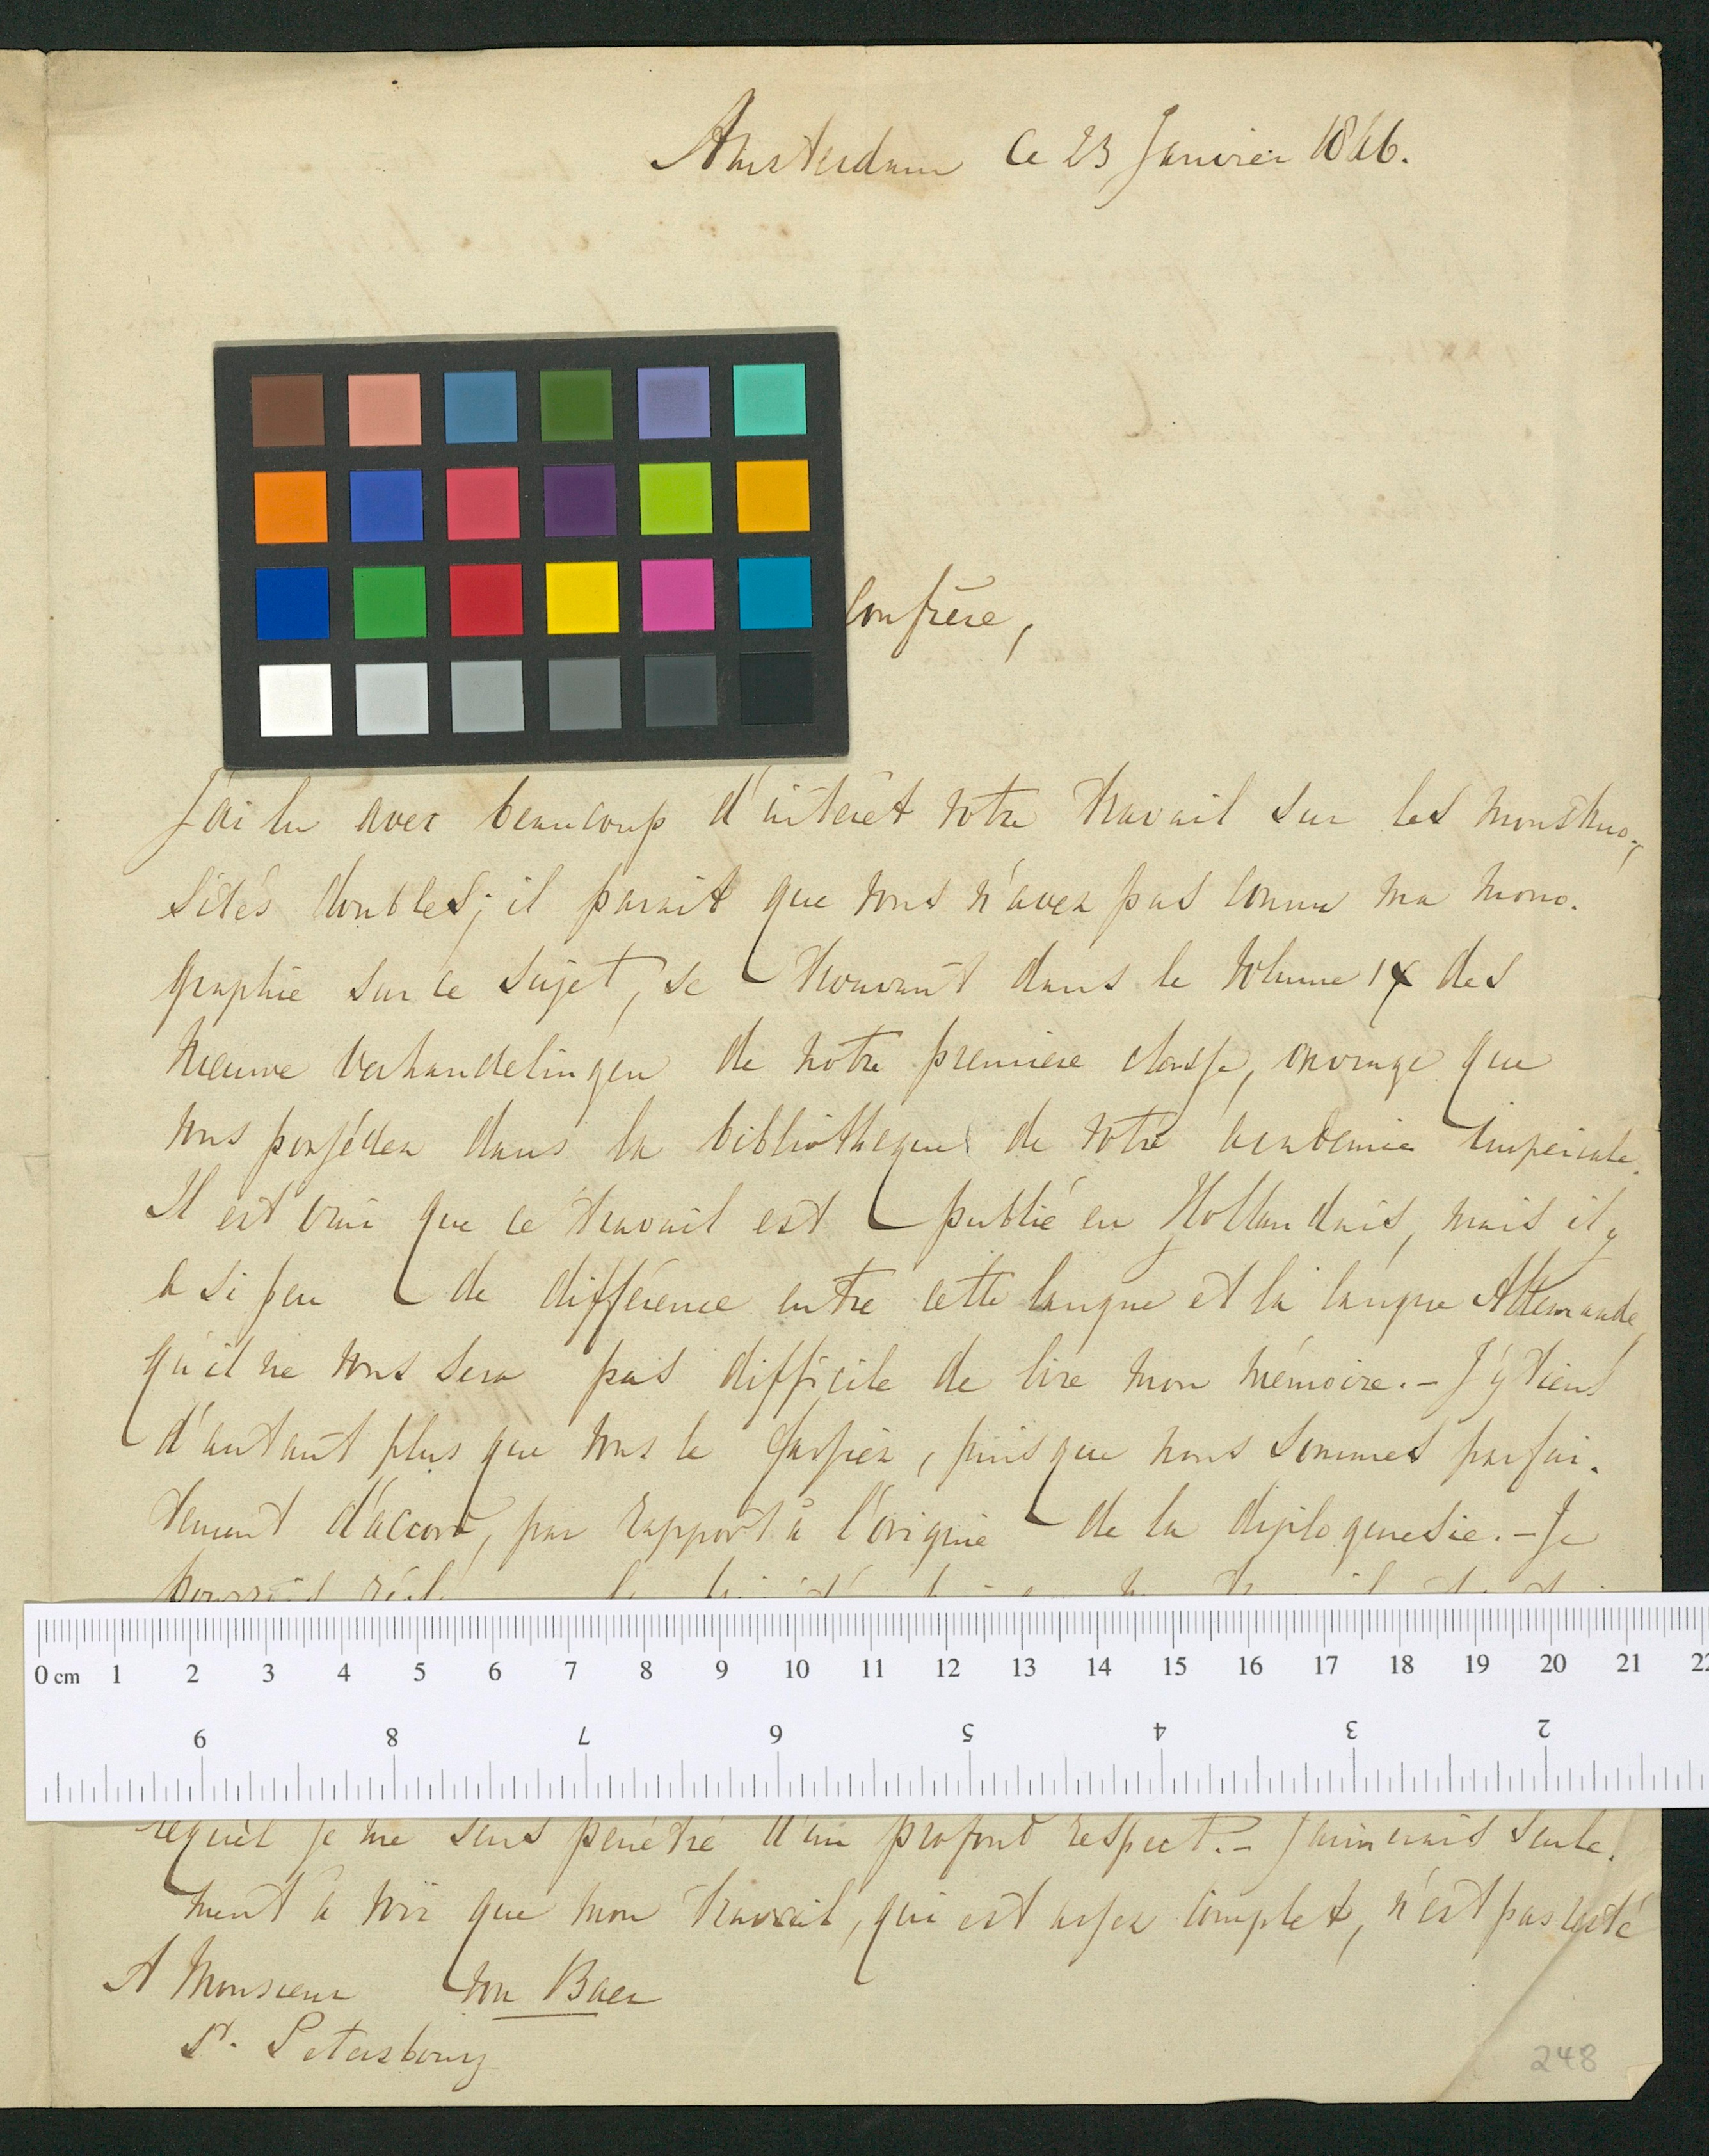 Amsterdam ce 23 Janvier 1846.
Confrère,
J'ai lu avec beaucoup d'intérêt votre travail sur les monstruo-
sités doubles; il parait que vous n'avez pas connu ma mono-
graphie sur ce sujet, se trouvant dans le volume IX des
Nieuwe Verhandelingen de notre première classe, ouvrage que
vous possédez dans la bibliothèque de votre académie impériale.
Il est vrai que ce travail est publié en Hollandais, mais il y
a si peu de différence entre cette langue et la langue Allemande
qu'il ne vous sera pas difficile de lire mon mémoire. - J'y tiens
d'autant plus que vous le fassiez, puisque nous sommes parfai-
tement d'accord, par rapport à l'origine de la diplogenesie. - Je
0 cm 1 2 3 4 5 6 7 8 9 10 11 12 13 14 15 16 17 18 19 20 21 22
9 8 7 6 5 4 3 2
lequel je me sens pénétré d'un profond respect. - J'aimerais seule-
ment à voir que mon travail, qui est assez complet, n'est pas resté
A Monsieur von Baer
St. Petersbourg
248